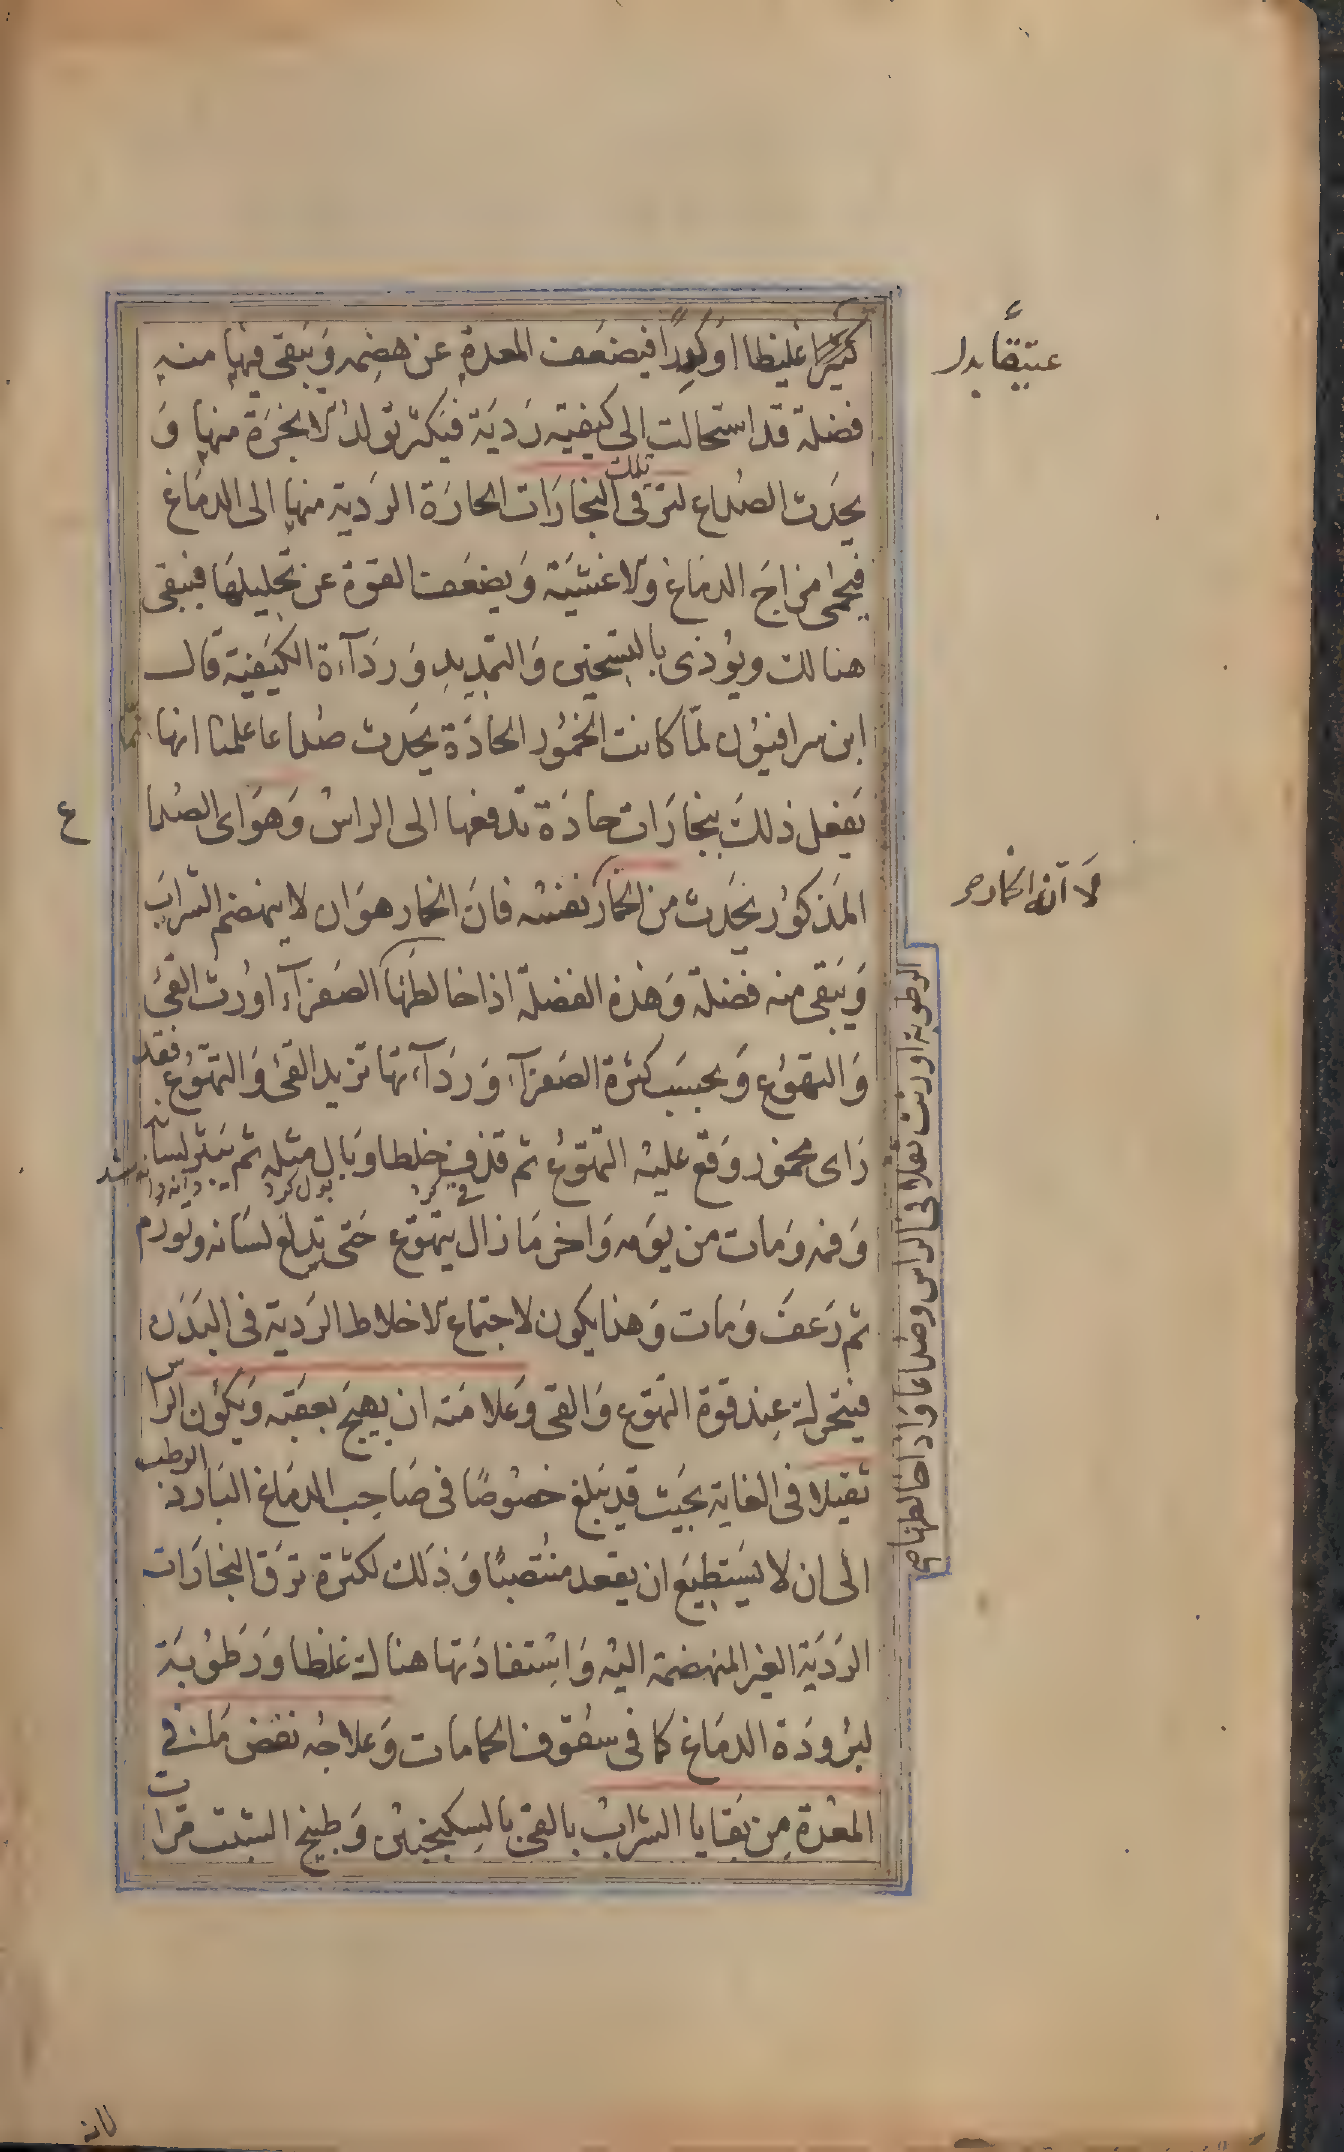 كثيرا غليظا او كدرا فيضعف المعدة عن هضمه وَيَبقى فيها منه
فضلة قد استحالت الى كيفية رَديَة فيَكثر تولد الابخرَة منها وَ
يحدَث الصُداع لترقى تلك البخارَات الحارَة الرَدية منها الى الدمَاغ
فيحمى مزاجَ الدمَاغ والاغشيَة وَيضعَف القوة عن تحليلهَا فيبقى
هنالك ويؤذى بالتسخين وَالتمديد وَرَدَآءة الكيَفية قال
ابن سرافيون لمّا كانت الخمُور الحادَة يحَدث صُداعا علمنا انها انما
يَفعل ذلكَ ببخارَات حادَة تدفعها الى الراسْ وَهوَاى الصُداع
المَذكوُر يحَدث من الخمار نفسْه فانَ الخمار هوَان لا ينهضم الشرابَ
وَيَبَقى منه فضلة وَهَذه الفضلة اذا خالطتها الصَفرآء اورث القئَ
وَالتهوُع وَبحسَب كثرة الصَفرآء وَرَدآءتها تزيد القئ وَالتهوُع فقد
رَاى مخمور وَقع عليه التهوّع ثم قذف خلطا وَبَال مثله ثم يَبثر لسانه
قى كرد
بول كرد
دانه دانه شد
وَفمه ومَات من يوَمه وَاخر مَا زال يتهوّع حَتى تدلع لسَانه وتورم
ثم رَعفَ ومَات وَهذا يكون لاجتماع الاخلاط الرَدية فى البَدَن
فيتحرك عِند قوة التهوّع وَالقى وَعَلامَته ان يهيجَ بعَقبه وَيكوُن الراس
ثقيلا فى الغاية بحَيث قد يَبلغ خصُوصًا فى صَاحِب الدمَاغ البَارد الرطب
الى ان لا يسَتطيَع ان يقعد منتصبًا وَذلك لكثرة ترقى البخارَات
الرَديَة الغير المنهضمة اليه وَاسْتفادَتها هنالك غلظا وَرَطوُبَة
لبرُودَة الدمَاغ كما فى سقوُف الحمامات وَعلاجُه نقض مَا فى
المعْدَة مِن بَقايا الشرابْ بالقئ بالسِكنجبين وَطبيخ الشبت مَرات
عتيقًا بدل
لا انه الخمار ص
الرطوبة اورثت ثقلا فى الراس وصداعا وَاذا خالطتها ص